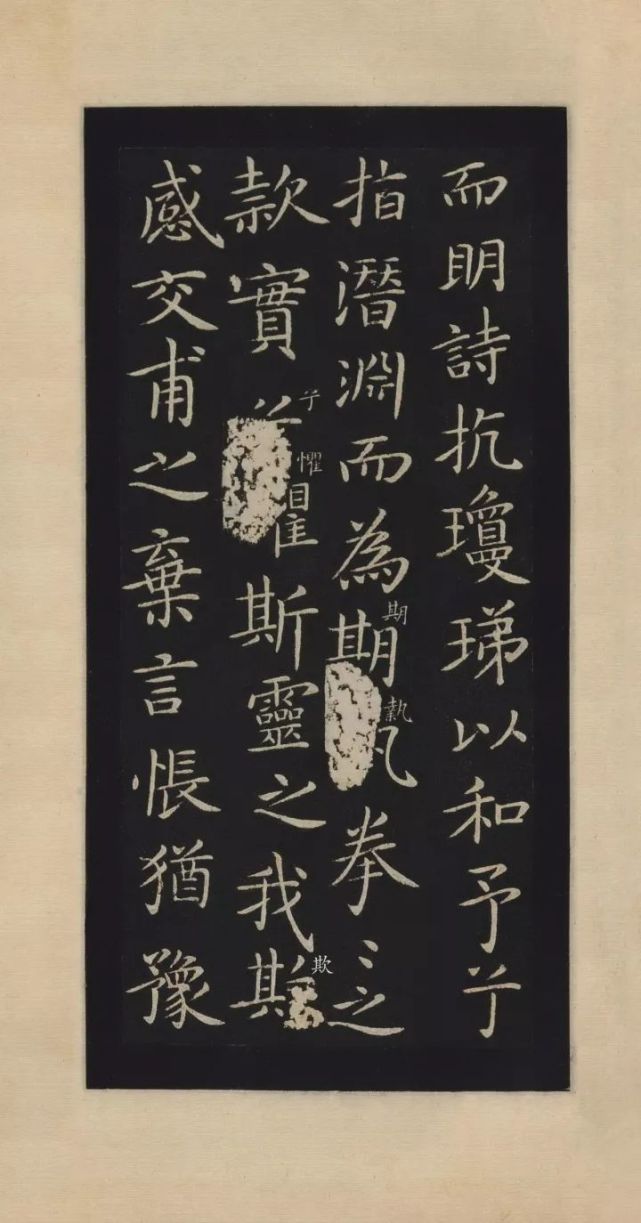 而明詩抗瓊珶以和予兮
指潛淵而為期執拳〻之
期
款實兮懼斯靈之我欺
感交甫之棄言悵猶豫